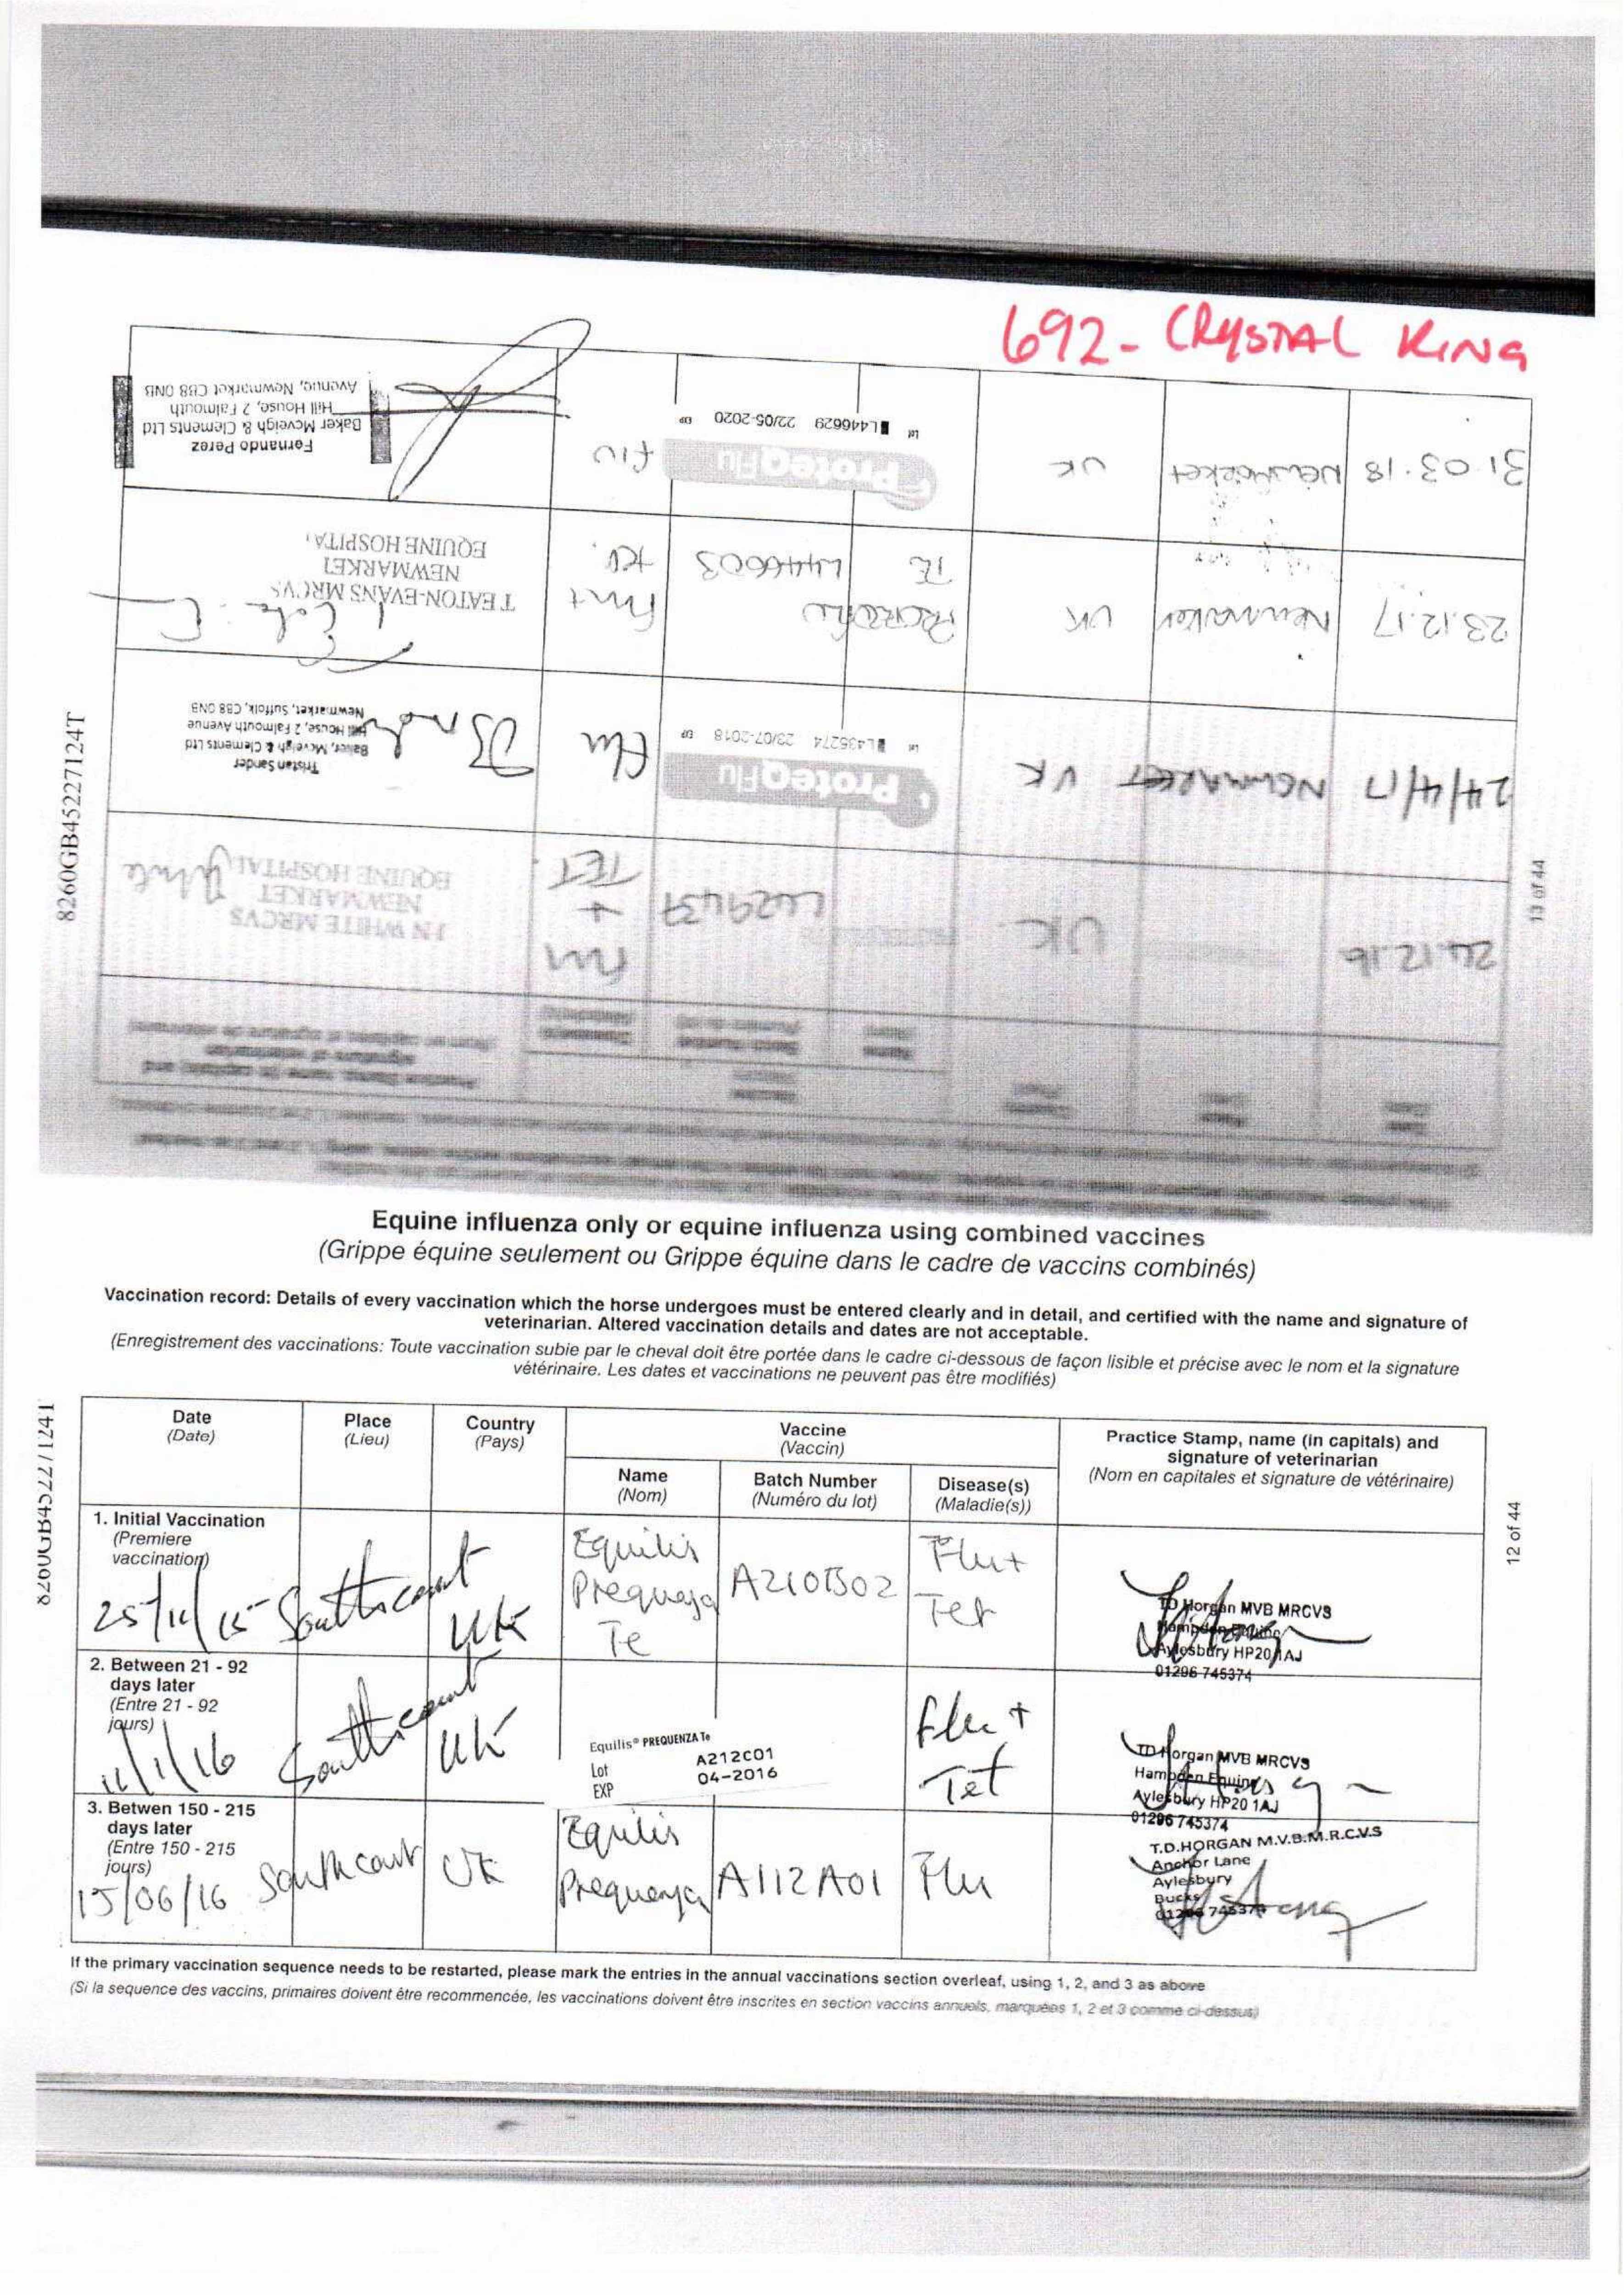 692 - CRYSTAL KING
31.03.18 Newmarket UK
ProteqFlu
Lot L446629 22/05-2020 EXP
Flu
Fernando Perez
Baker Mcveigh & Clements Ltd
Hill House, 2 Falmouth
Avenue, Newmarket CB8 0NB
23.12.17 Newmarket UK
TE L446603
T EATON-EVANS MRCVS
NEWMARKET
EQUINE HOSPITA
24/4/17 NEWMARKET UK
ProteqFlu
Lot L435274 23/07-2018 EXP
Flu
Tristan Sander
Baker, Mcveigh & Clements Ltd
Hill House, 2 Falmouth Avenue
Newmarket, Suffolk, CB8 0NB
8260GB452271124T
.12.16 UK L429437
Flu
+
TET
J N WHITE MRCVS
NEWMARKET
EQUINE HOSPITAL
White
13 of 44
Equine influenza only or equine influenza using combined vaccines
(Grippe équine seulement ou Grippe équine dans le cadre de vaccins combinés)
Vaccination record: Details of every vaccination which the horse undergoes must be entered clearly and in detail, and certified with the name and signature of
veterinarian. Altered vaccination details and dates are not acceptable.
(Enregistrement des vaccinations: Toute vaccination subie par le cheval doit être portée dans le cadre ci-dessous de façon lisible et précise avec le nom et la signature
vétérinaire. Les dates et vaccinations ne peuvent pas être modifiés)
8260GB452271124T
Date
(Date)
Place
(Lieu)
Country
(Pays)
Vaccine
(Vaccin)
Name
(Nom)
Batch Number
(Numéro du lot)
Disease(s)
(Maladie(s))
Practice Stamp, name (in capitals) and
signature of veterinarian
(Nom en capitales et signature de vétérinaire)
12 of 44
1. Initial Vaccination
(Premiere
vaccination)
25/11/15 Southcourt UK
Equilis
Prequenza
Te
A210B02
Flu+
Tet
TD Horgan MVB MRCVS
Hampden Equine
Aylesbury HP20 1AJ
01296 745374
2. Between 21 - 92
days later
(Entre 21 - 92
jours)
11/1/16 Southcourt UK
Equilis® PREQUENZA Te
Lot A212C01
EXP 04-2016
Flu +
Tet
TD Horgan MVB MRCVS
Hampden Equine
Aylesbury HP20 1AJ
01296 745374
3. Betwen 150 - 215
days later
(Entre 150 - 215
jours)
15/06/16 Southcourt UK
Equilis
Prequenza
A112A01
Flu
T.D.HORGAN M.V.B.M.R.C.V.S
Anchor Lane
Aylesbury
Bucks
01296 745374
If the primary vaccination sequence needs to be restarted, please mark the entries in the annual vaccinations section overleaf, using 1, 2, and 3 as above
(Si la sequence des vaccins, primaires doivent être recommencée, les vaccinations doivent être inscrites en section vaccins annuels, marquées 1, 2 et 3 comme ci-dessus)